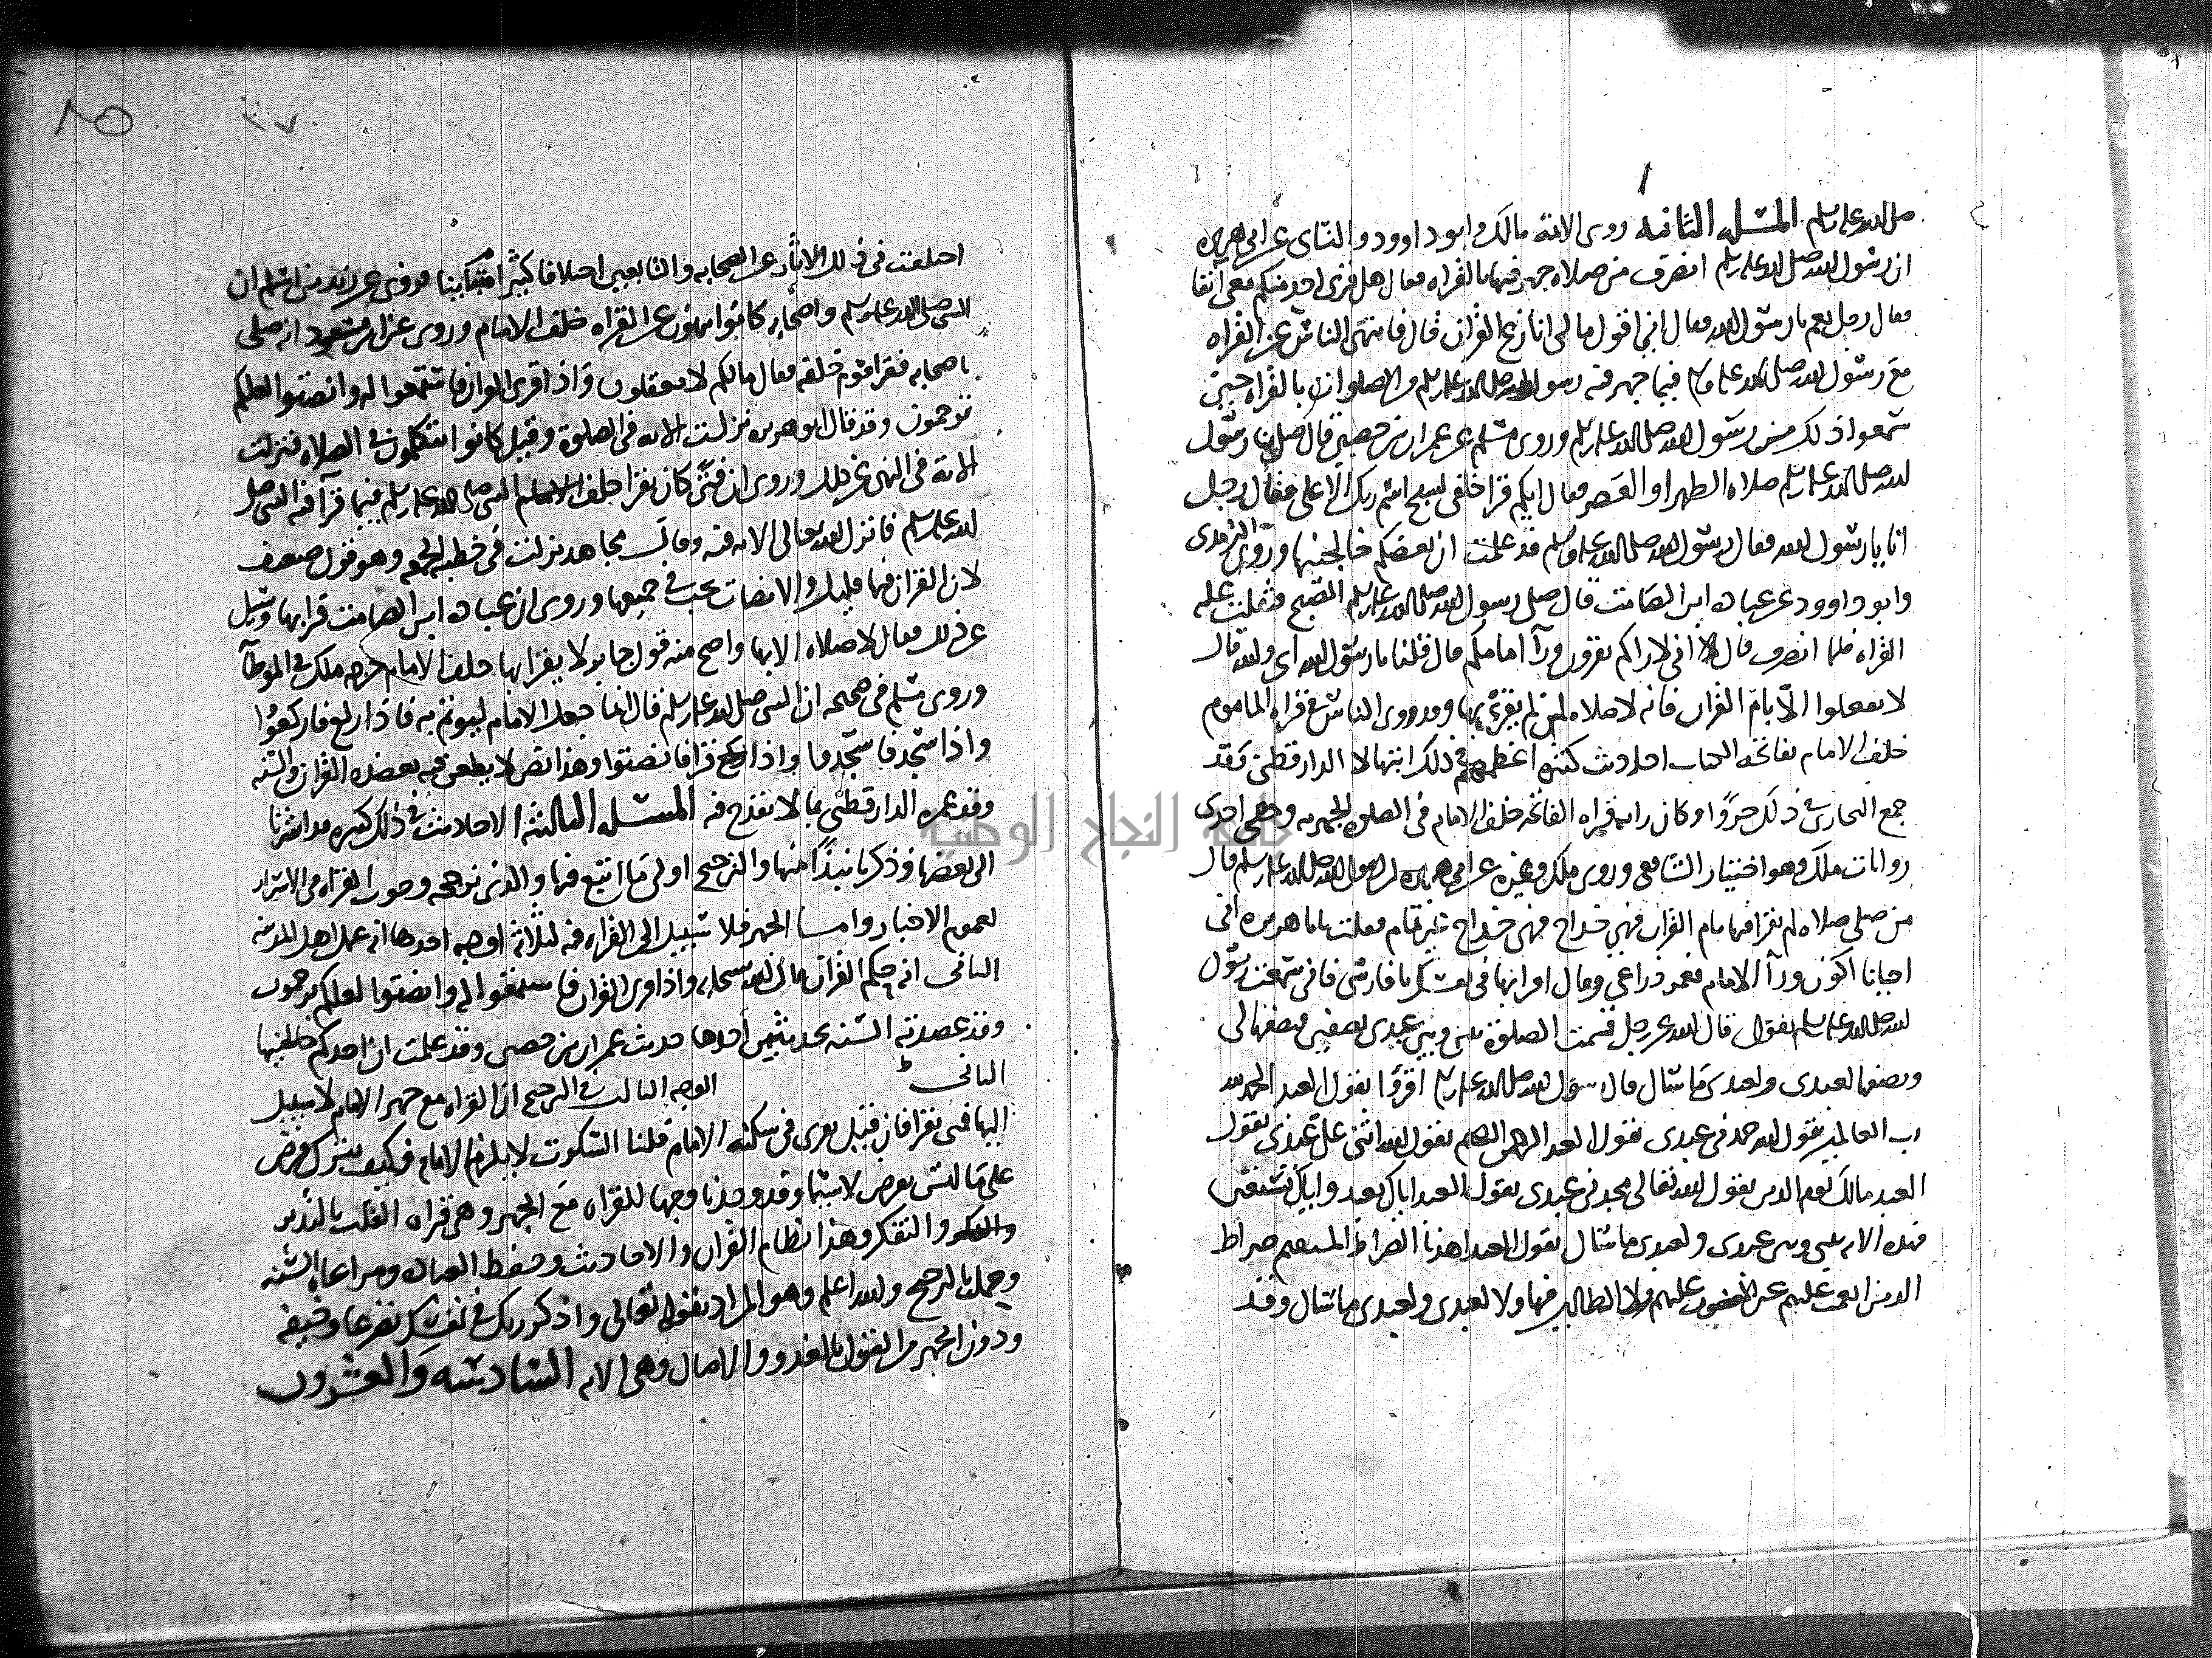 صلى الله عليه وسلم المسئلة الثانيه روى الائمة مالك وابو داوود والنساى عن ابى هريره
ان رسول الله صلى الله عليه وسلم انصرف من صلاه جهر فيها بالقراه فقال هل قرى احد منكم معى آنفا
فقال رجل نعم يا رسول الله فقال انى اقول ما لى انازع القران قال فانتهى الناس عن القراه
مع رسول الله صلى الله عليه وسلم فيما جهر فيه رسول الله صلى الله عليه وسلم من الصلوات بالقراه حين
سمعوا ذلك من رسول الله صلى الله عليه وسلم وروى مسلم عن عمران بن حصين قال صلى بنا رسول
الله صلى الله عليه وسلم صلاه الظهر او العصر فقال ايكم قرا خلفى بسبح اسم ربك الاعلى فقال رجل
انا يا رسول الله فقال رسول الله صلى الله عليه وسلم قد علمت ان بعضكم خالجنيها وروى الترمذى
وابو داوود عن عباده ابن الصامت قال صلى رسول الله صلى الله عليه وسلم الصبح فثقلت عليه
القراه فلما انصرف قال انى لاراكم تقرون ورآ امامكم قال قلنا يا رسول الله اى والله قال
لا تفعلوا الا بام القران فانه لا صلاه لمن لم يقرئ بها وقد روى الناس فى قراه الماموم
خلف الامام بفاتحه الكتاب احاديث كثيره اعظمهم فى ذلك ابتهالا الدارقطنى وقد
جمع البخارى فى ذلك جزوا وكان رايه قراه الفاتحه خلف الامام فى الصلوه الجهريه وهى احدى
روايات ملك وهو اختيار الشافعى وروى ملك وغيره عن ابى هريره ان رسول الله صلى الله عليه وسلم قال
من صلى صلاه لم يقرا فيها بام القران فهى خداج فهى خداج غير تمام فقلت يابا هريره انى
احيانا اكون ورآ الامام فغمز ذراعى وقال اقرا بها فى نفسك يا فارسى فانى سمعت رسول
الله صلى الله عليه وسلم يقول قال الله عز وجل قسمت الصلوة بينى وبين عبدى نصفين فنصفها لى
ونصفها لعبدى ولعبدى ما سال قال رسول الله صلى الله عليه وسلم اقرؤا يقول العبد الحمد لله
رب العالمين يقول الله حمدنى عبدى يقول العبد الرحمن الرحيم يقول الله اثنى على عبدى يقول
العبد مالك يوم الدين يقول الله تعالى مجدنى عبدى يقول العبد اياك نعبد واياك نستعين
فهذه الايه بينى وبين عبدى ولعبدى ما سال يقول العبد اهدنا الصراط المستقيم صراط
الذين انعمت عليهم غير المغضوب عليهم ولا الضالين فهاولا لعبدى ولعبدى ما سال وقد
٨٥
١٠٧
اختلفت فى ذلك الاثار عن الصحابه والتابعين اختلافا كثيرا متباينا فروى عن زيد بن اسلم ان
النبى صلى الله عليه وسلم واصحابه كانوا ينهون عن القراه خلف الامام وروى عن ابن مسعود انه صلى
باصحابه فقرا قوم خلفه فقال ما لكم لا تعقلون واذا قرى القران فاستمعوا له وانصتوا لعلكم
ترحمون وقد قال ابو هريره نزلت الايه فى الصلوة وقيل كانوا يتكلمون فى الصلاه فنزلت
الاية فى النهى عن ذلك وروى ان فتى كان يقرا خلف النبى صلى الله عليه وسلم فيما قرآ فيه النبى صلى
الله عليه وسلم فانزل الله تعالى الايه فيه وقال مجاهد نزلت فى خطبه الجمعه وهو قول ضعيف
لان القران فيها قليل والانصات يجب فى جميعها وروى ان عباده ابن الصامت قرا بها وسيل
عن ذلك فقال لا صلاه الا بها واصح منه قول جابر لا يقرا بها خلف الامام خرجه ملك فى الموطآ
وروى مسلم فى صحيحه ان النبى صلى الله عليه وسلم قال انما جعل الامام ليوتم به فاذا ركع فاركعوا
واذا سجد فاسجدوا واذا قرا فانصتوا وهذا نص لا يطعن فيه يعضده القران والسنه
وقد غمزه الدارقطنى بما لا يقدح فيه المسئلة الثالثة الاحاديث فى ذلك كثيره قد اشرنا
الى بعضها وذكرنا نبذا منها والترجيح اولى ما اتبع فيها والذى نرجحه وجوب القراه فى الاسرار
لعموم الاخبار وامسا الجهر فلا سبيل الى القراه فيه لثلاثة اوجه احدها انه عمل اهل المدينه
الثانى انه حكم القران قال الله سبحانه واذا قرى القران فاستمعوا له وانصتوا لعلكم ترحمون
وقد عضدته السنه بحديثين احدها حديث عمران بن حصين وقد علمت ان احدكم خالجنيها
الثانى الوجه الثالث فى الترجيح ان القراه مع جهر الامام لا سبيل
اليها فمتى يقرا فان قيل يقرى فى سكته الامام قلنا السكوت لا يلزم الامام فكيف يتركب فرض
على ما ليس بفرض لا سيما وقد وجدنا وجها للقراه مع الجهر وهى قراه القلب بالتدبر
والتفكر وهذا نظام القران والاحاديث وحفظ العباده ومراعاه السنه
وعمل بالترجيح والله اعلم وهو المراد بقوله تعالى واذكر ربك فى نفسك تضرعا وخيفه
ودون الجهر من القول بالغدو والاصال وهى الايه السادسه والعشرون
جامعة النجاح الوطنية